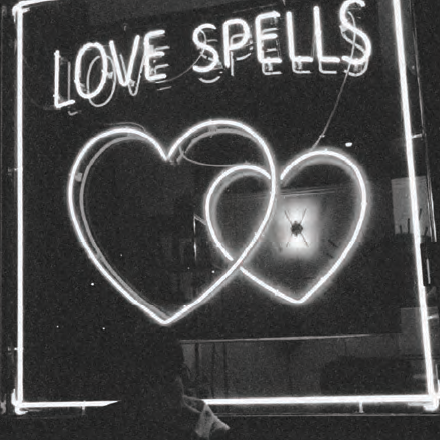 LOVE SPELLS